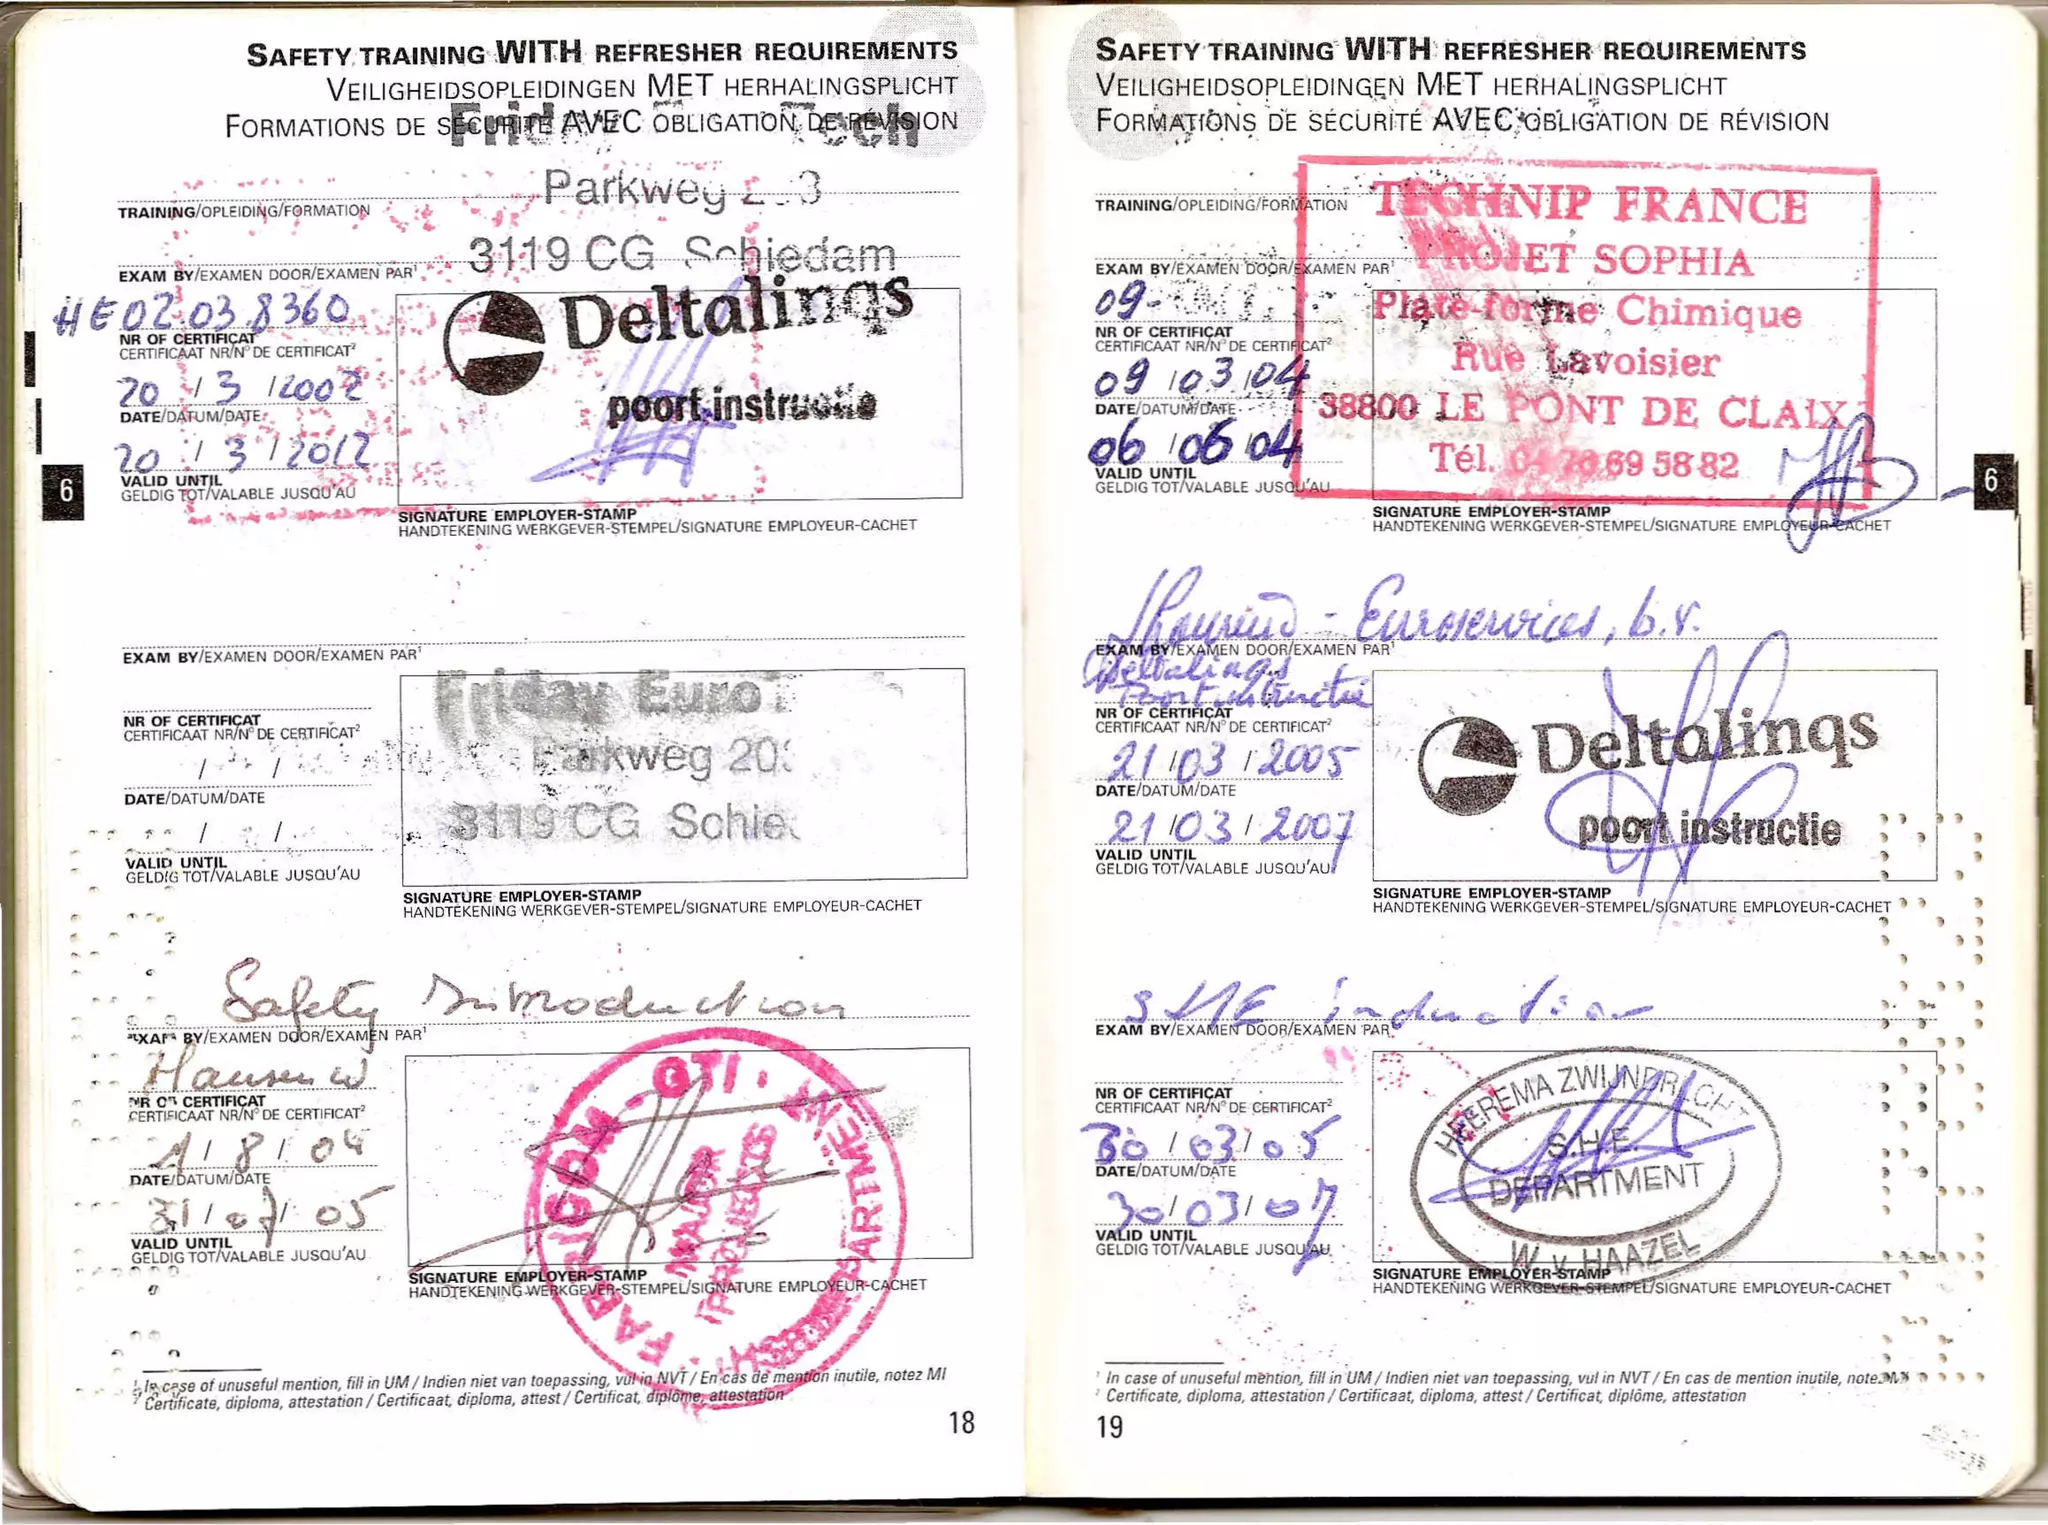 SAFETY TRAINING WITH REFRESHER REQUIREMENTS
VEILIGHEIDSOPLEIDINGEN MET HERHALINGSPLICHT
FORMATIONS DE SÉCURITÉ AVEC OBLIGATION DE RÉVISION
Friday Tech
Parkweg
3119 CG Schiedam
TRAINING/OPLEIDING/FORMATION
EXAM BY/EXAMEN DOOR/EXAMEN PAR¹
HE02.03.8360
NR OF CERTIFICAT
CERTIFICAAT NR/N° DE CERTIFICAT²
20 / 3 / 2002
DATE/DATUM/DATE
20 / 3 / 2012
VALID UNTIL
GELDIG TOT/VALABLE JUSQU'AU
Deltalinqs
poort instructie
SIGNATURE EMPLOYER-STAMP
HANDTEKENING WERKGEVER-STEMPEL/SIGNATURE EMPLOYEUR-CACHET
6
EXAM BY/EXAMEN DOOR/EXAMEN PAR¹
NR OF CERTIFICAT
CERTIFICAAT NR/N° DE CERTIFICAT²
/ /
DATE/DATUM/DATE
/ /
VALID UNTIL
GELDIG TOT/VALABLE JUSQU'AU
Friday Euro
Parkweg
3119 CG Schie
SIGNATURE EMPLOYER-STAMP
HANDTEKENING WERKGEVER-STEMPEL/SIGNATURE EMPLOYEUR-CACHET
Safety Introduction
EXAM BY/EXAMEN DOOR/EXAMEN PAR¹
NR OF CERTIFICAT
CERTIFICAAT NR/N° DE CERTIFICAT²
/ 8 / 04
DATE/DATUM/DATE
31 / 07 / 05
VALID UNTIL
GELDIG TOT/VALABLE JUSQU'AU
FABRICOM - GTI
MAJOR
PROJECTS
SIGNATURE EMPLOYER-STAMP
HANDTEKENING WERKGEVER-STEMPEL/SIGNATURE EMPLOYEUR-CACHET
¹ In case of unuseful mention, fill in UM / Indien niet van toepassing, vul in NVT / En cas de mention inutile, notez MI
² Certificate, diploma, attestation / Certificaat, diploma, attest / Certificat, diplôme, attestation
18
SAFETY TRAINING WITH REFRESHER REQUIREMENTS
VEILIGHEIDSOPLEIDINGEN MET HERHALINGSPLICHT
FORMATIONS DE SÉCURITÉ AVEC OBLIGATION DE RÉVISION
TRAINING/OPLEIDING/FORMATION
EXAM BY/EXAMEN DOOR/EXAMEN PAR¹
09-
NR OF CERTIFICAT
CERTIFICAAT NR/N° DE CERTIFICAT²
09 / 03 / 04
DATE/DATUM/DATE
06 / 06 / 04
VALID UNTIL
GELDIG TOT/VALABLE JUSQU'AU
TECHNIP FRANCE
PROJET SOPHIA
Plate-forme Chimique
Rue Lavoisier
38800 LE PONT DE CLAIX
Tél. 69 58 82
SIGNATURE EMPLOYER-STAMP
HANDTEKENING WERKGEVER-STEMPEL/SIGNATURE EMPLOYEUR-CACHET
6
- Euroservices, b.v.
EXAM BY/EXAMEN DOOR/EXAMEN PAR¹
Deltalinqs
Poort instructie
NR OF CERTIFICAT
CERTIFICAAT NR/N° DE CERTIFICAT²
21 / 03 / 2005
DATE/DATUM/DATE
21 / 03 / 2007
VALID UNTIL
GELDIG TOT/VALABLE JUSQU'AU
Deltalinqs
poort instructie
SIGNATURE EMPLOYER-STAMP
HANDTEKENING WERKGEVER-STEMPEL/SIGNATURE EMPLOYEUR-CACHET
SHE induction
EXAM BY/EXAMEN DOOR/EXAMEN PAR¹
NR OF CERTIFICAT
CERTIFICAAT NR/N° DE CERTIFICAT²
30 / 03 / 05
DATE/DATUM/DATE
30 / 03 / 07
VALID UNTIL
GELDIG TOT/VALABLE JUSQU'AU
HEEREMA ZWIJNDRECHT
S.H.E.
DEPARTMENT
W. v. HAAZEL
SIGNATURE EMPLOYER-STAMP
HANDTEKENING WERKGEVER-STEMPEL/SIGNATURE EMPLOYEUR-CACHET
¹ In case of unuseful mention, fill in UM / Indien niet van toepassing, vul in NVT / En cas de mention inutile, notez MI
² Certificate, diploma, attestation / Certificaat, diploma, attest / Certificat, diplôme, attestation
19